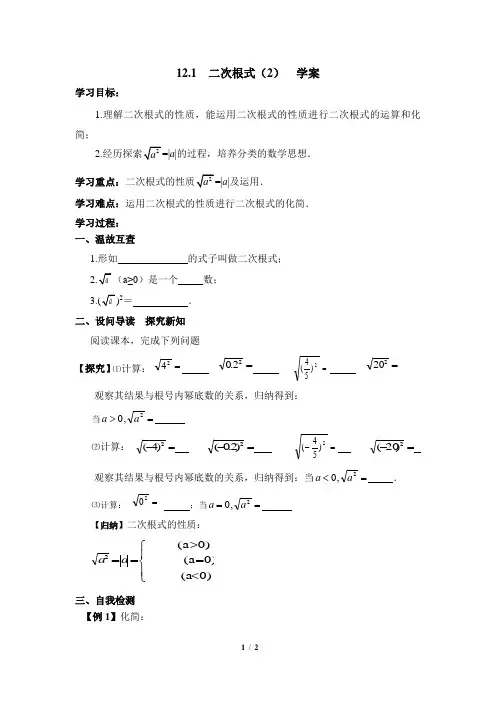 12.1 二次根式（2） 学案
学习目标：
1.理解二次根式的性质，能运用二次根式的性质进行二次根式的运算和化
简；
2.经历探索√a²=|a|的过程，培养分类的数学思想．
学习重点：二次根式的性质√a²=|a|及运用．
学习难点：运用二次根式的性质进行二次根式的化简．
学习过程：
一、温故互查
1.形如______的式子叫做二次根式；
2.√a（a≥0）是一个____数；
3.(√a)²＝______．
二、设问导读 探究新知
阅读课本，完成下列问题
【探究】⑴计算：√4²=____ √0.2²=____ √(4/5)²=____ √20²=____
观察其结果与根号内幂底数的关系，归纳得到：
当a>0,√a²=____
⑵计算：√(-4)²=____ √(-0.2)²=____ √(-4/5)²=____ √(-20)²=____
观察其结果与根号内幂底数的关系，归纳得到：当a<0,√a²=____．
⑶计算：√0²=____；当a=0,√a²=____
【归纳】二次根式的性质：
√a²=|a|={ (a>0)
(a=0)
(a<0)
三、自我检测
【例1】化简：
1 / 2